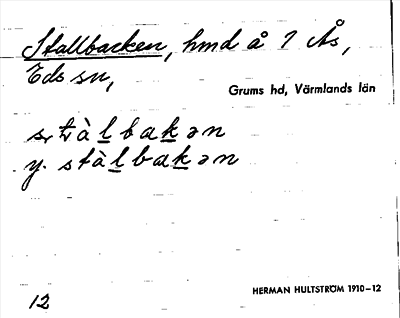 Stallbacken, hmd å 1 Ås,
Eds sn,
Grums hd, Värmlands län
s. stàl̲bak̲ən
y. stàl̲bak̲ən
HERMAN HULTSTRÖM 1910–12
12